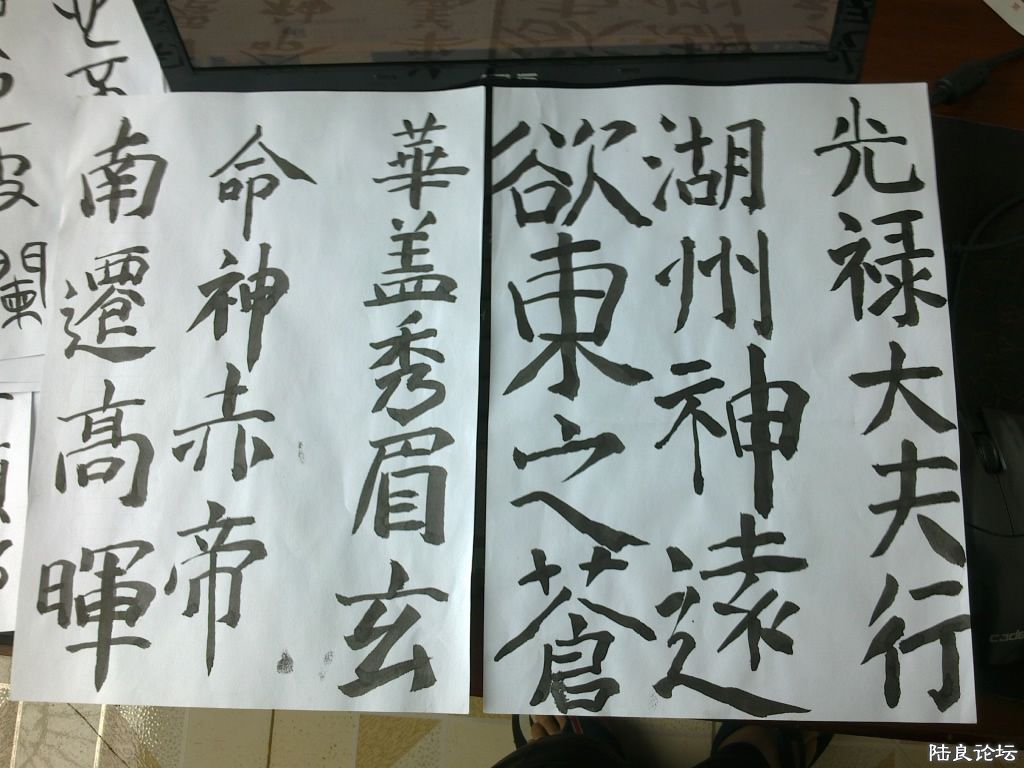 光禄大夫行
湖州神遠
欲東之蒼
華盖秀眉玄
命神赤帝
南遷高暉
陆良论坛